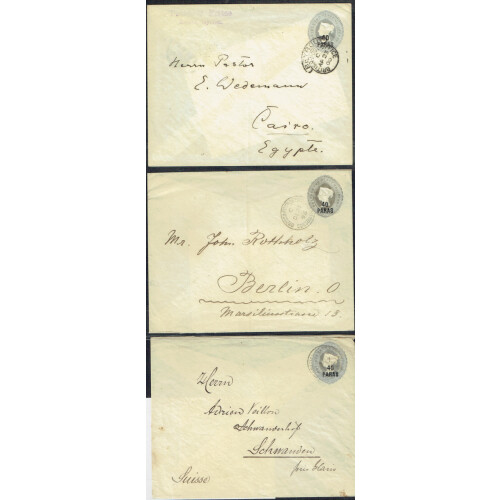 40
PARAS
Herrn Pastor
E. Wedemann
Cairo.
Egypte.
40
PARAS
Mr. John Rothholz
Berlin. O
Marsiliusstrasse 18.
40
PARAS
Herrn
Adrien Veillon
Schwanderhof
Schwanden
Suisse